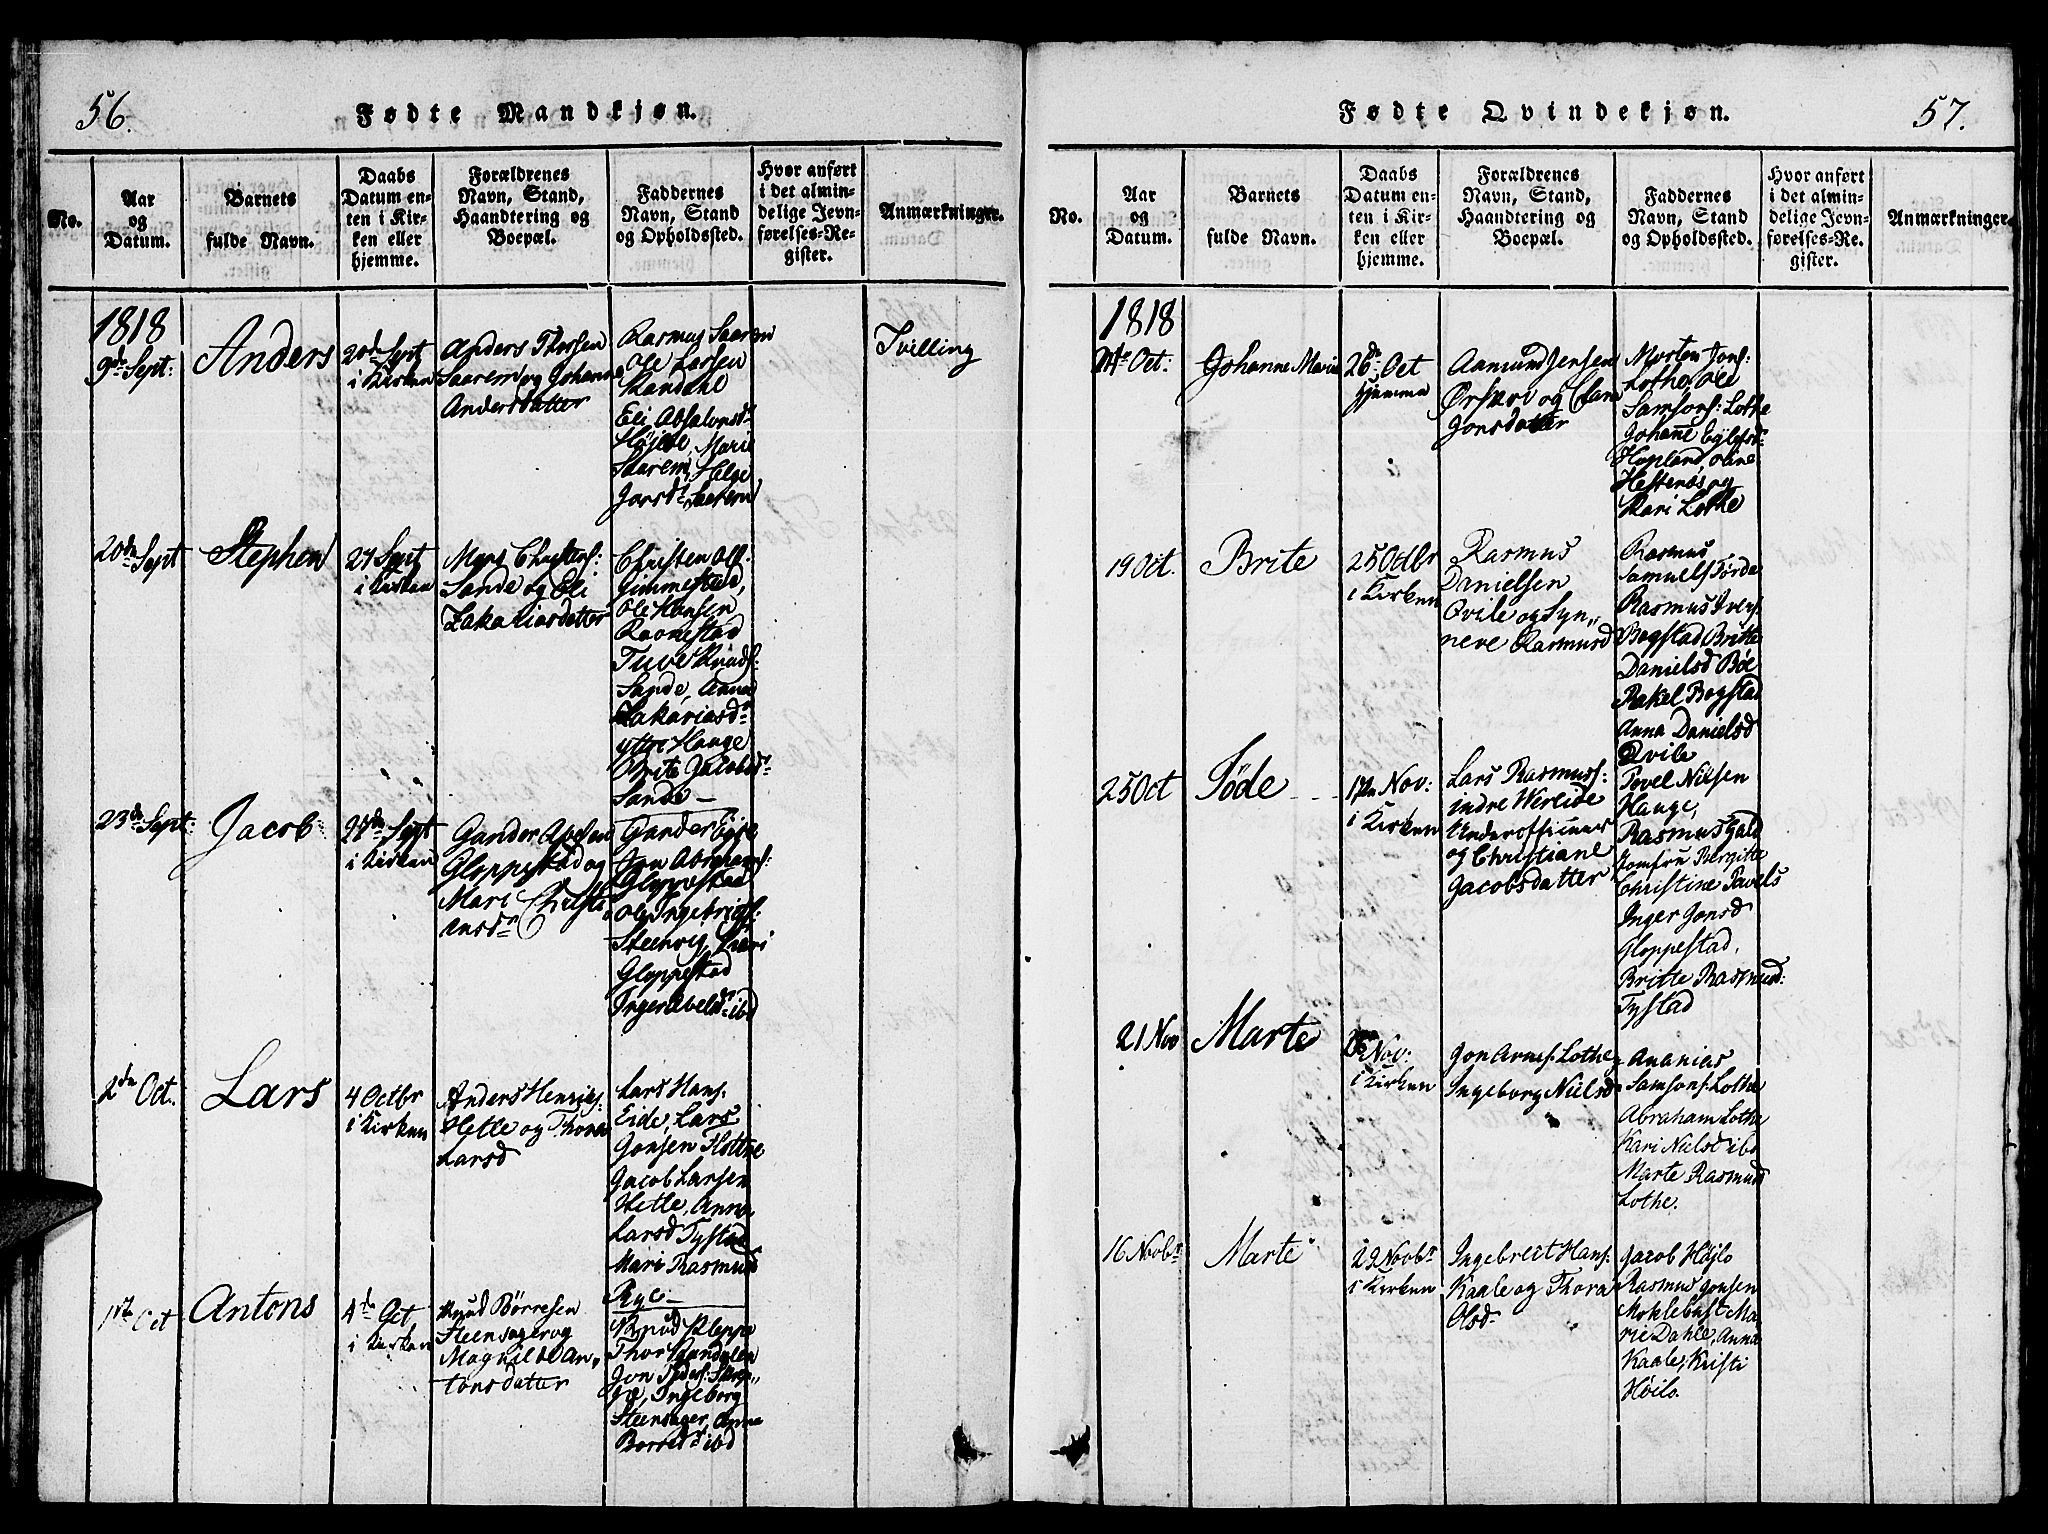 56.
Fødte Mandkjøn.
No.
Aar
og
Datum.
Barnets
fulde Navn.
Daabs
Datum en-
ten i Kir-
ken eller
hjemme.
Forældrenes
Navn, Stand,
Haandtering og
Boepæl.
Faddernes
Navn, Stand
og Opholdssted.
Hvor anført
i det almin-
delige Jevn-
førelses-Re-
gister.
Anmærkninger.
1818
9de Sept:
Anders
20d Sept
i Kirken
Anders Thorsen
Saarem og Johanne
Andersdatter
Rasmus Saarem
Ole Larsen
Mandahl
Eli Absalonsdr
Højete, Marie
Saarem, Helge
Jonsdr Saarem
Tvilling
20de Sept
Stephen
27 Sept
i Kirken
Mons Christens:
Sande og Eli
Zakariasdatter
Christen Ols:
Gimmestad,
Ole Hansen
Raonestad
Tuve Knuds:
Sande, Anna
Zakariasdr
yttre Hauge
Brite Jacobsdr
Sande
23de Sept:
Jacob
28de Sept
i Kirken
Gunder Abelsen
Gloppestad og
Mari Christi
ansdr
Gunder Eide
Jon Abrahams:
Gloppestad
Ole Ingebrigts:
Steenvig, Kari
Gloppestad
Inger Abelsdr ibd
2de Oct:
Lars
4 Octbr
i Kirken
Anders Henrics:
Hetle og Thora
Larsd
Lars Hans:
Eide, Lars
Jonsen Flottre
Jacob Larsen
Hetle, Anna
Larsd Tystad
Mari Rasmusd
Rye
1ste Oct
Antons
4de Oct
i Kirken
Knud Børresen
Steensager og
Magnilde An„
tonsdatter
Knud Kleppe
Thor Sandalen
Jon Peders:
Ingeborg
Steensager, Anna
Borresdr ibd
57.
Fødte Qvindekjøn.
No.
Aar
og
Datum.
Barnets
fulde Navn.
Daabs
Datum en-
ten i Kir-
ken eller
hjemme.
Forældrenes
Navn, Stand,
Haandtering og
Boepæl.
Faddernes
Navn, Stand
og Opholdssted.
Hvor anført
i det almin-
delige Jevn-
førelses-Re-
gister.
Anmærkninger.
1818
Oct:
Johanne Marie
26de Oct
hjemme
Aamund Jensen
Ørskoi og
Jonsdatter
Morten Jons:
Lothe, Ole
Samsons: Lothe
Johanne Eylefsdr
Hopland, Oline
Hestenes og
Mari Lothe
19 Oct.
Brite
25 Octbr
i Kirken
Rasmus
Danielsen
Qvile og Syn„
neve Rasmusd
Rasmus
Samuels Førde
Rasmus Ivers:
Bogstad Britte
Danielsd Bøe
Rakel Bogstad
Anna Danielsd
Qvile
25 Oct
Søde
1ste Nov:
i Kirken
Lars Rasmus:
indre Werlide
Underofficeer
og Christiane
Jacobsdatter
Povel Nilsen
Hauge,
Rasmus Gald
Jomfru Birgitte
Christine Pavels
Inger Jonsd
Gloppestad,
Britte Rasmusd:
Tystad
21 Nov
Marte
Nov:
i Kirken
Jon Arnes: Lothe
Ingeborg Nielsd
Ananias
Samsons: Lothe
Abraham Lothe
Kari Nielsd ibd
Marte Rasmusd
Lothe.
16 Novbr
Marte
29 Novbr
i Kirken
Ingebrect Hans:
Kaale og Thora
Olsd
Jacob Højlo
Rasmus Jonsen
Moklebust Ma„
rie Dahle, Anna
Kaale, Kristi
Høilo.